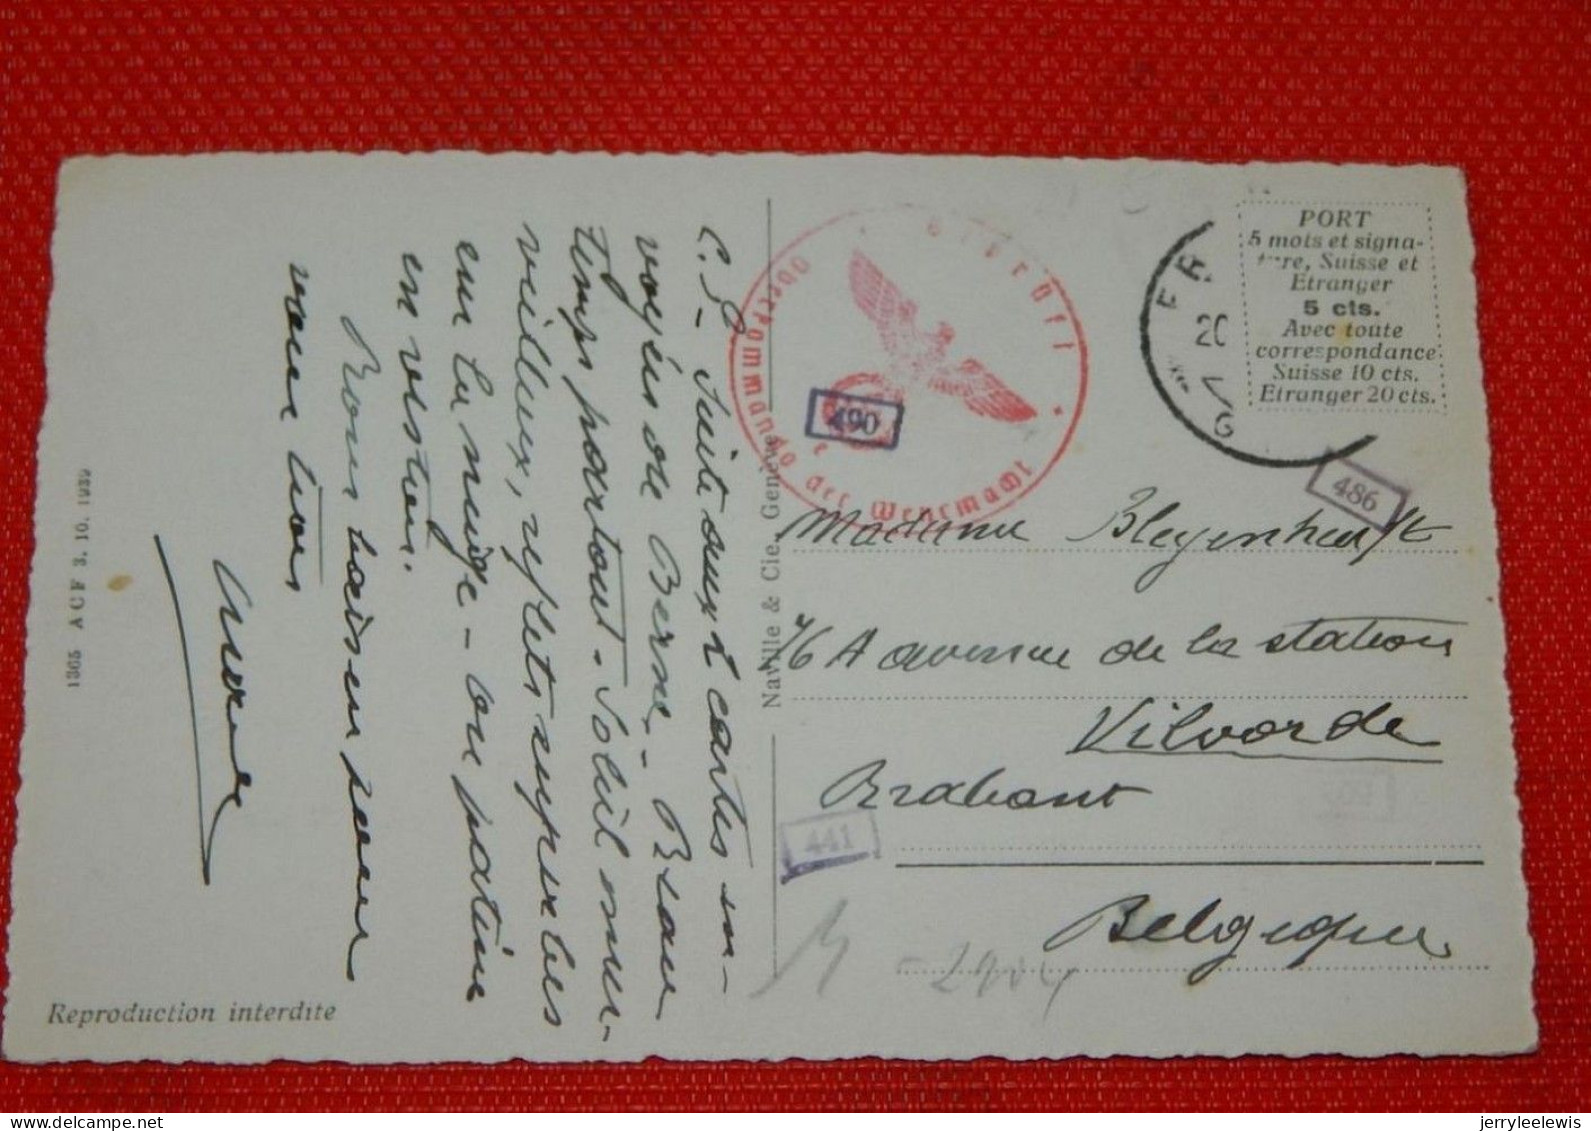 C. S. - Suite aux 2 cartes en-
voyées de Berne. - Beau
temps partout. Soleil mer-
veilleux, reflets superbes
sur la neige - on patine
en veston.
Bons baisers pour
vous tous
1365 ACF 3. 10. 1939
Reproduction interdite
Naville & Cie, Genève
Geprüft
Oberkommando der Wehrmacht
490
PORT
5 mots et signa-
ture, Suisse et
Etranger
5 cts.
Avec toute
correspondance
Suisse 10 cts.
Etranger 20 cts.
20
486
Madame Bleyenheuft
76 A avenue de la station
Vilvorde
Brabant
441
Belgique
jerryleelewis